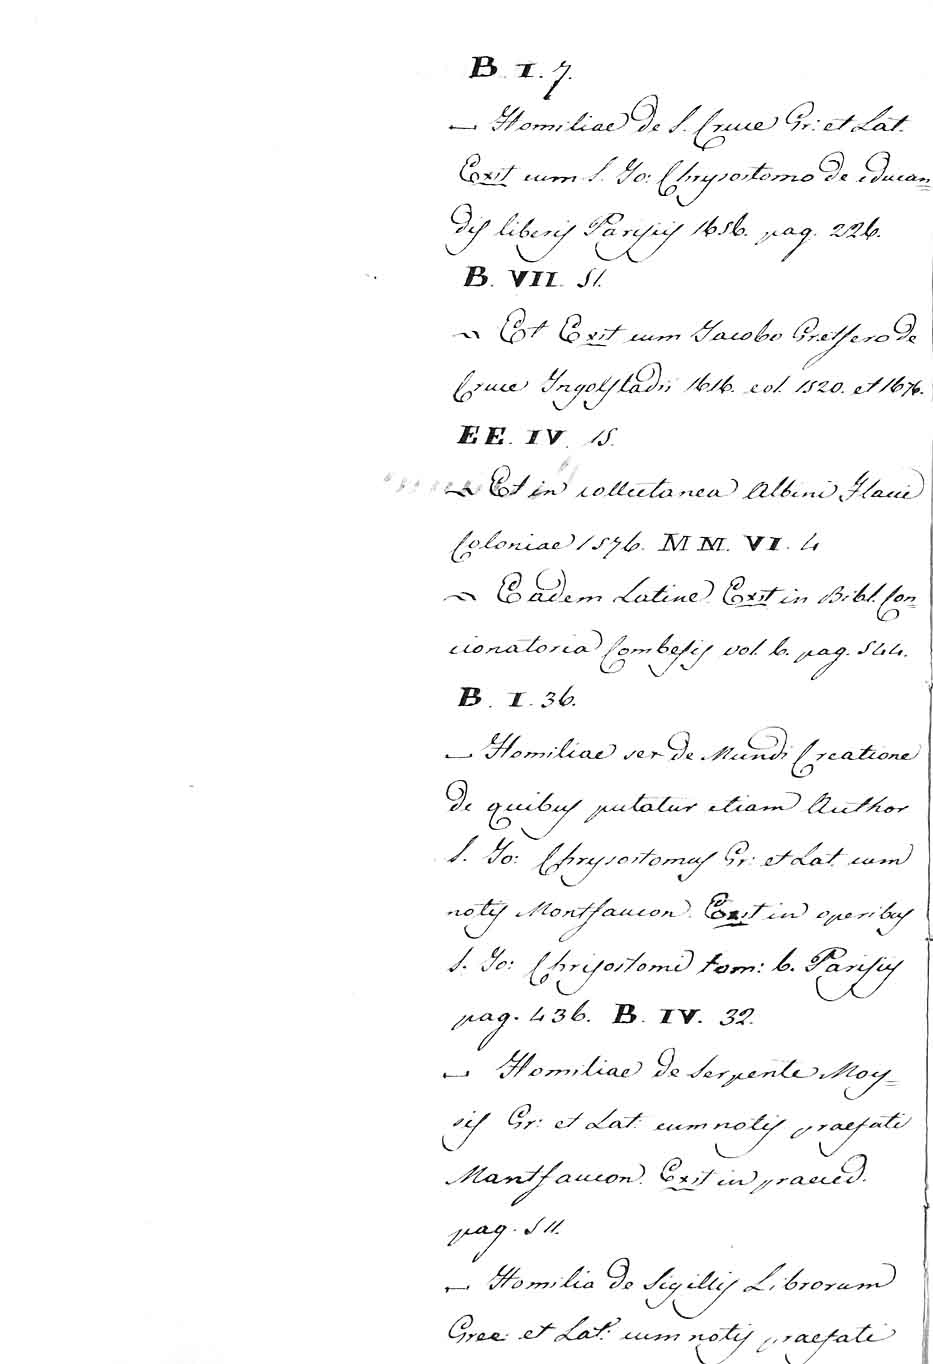 B. I. 7.
— Homiliae de S. Cruce Gr: et Lat.
Exit cum S. Jo: Chrysostomo de educan=
dis liberis Parisiis 1656. pag. 226.
B. VII. 51.
~ Et Exit cum Jacobo Gretsero de
Cruce Ingolstadii 1616. col. 1520. et 1676.
EE. IV. 15.
~ Et in collectanea Albini Flacci
Coloniae 1576. MM. VI. 4
~ Eadem Latine. Exit in Bibl. Con=
cionatoria Combefis vol. 6. pag. 544.
B. I. 36.
— Homiliae sex de Mundi Creatione
de quibus putatur etiam Author
S. Jo: Chrysostomus Gr: et Lat. cum
notis Montfaucon. Exit in operibus
S. Jo: Chrisostomi tom: 6. Parisiis
pag. 436. B. IV. 32.
— Homiliae de Serpente Moy=
sis Gr: et Lat: cum notis praefati
Mantfaucon. Exit in praeced.
pag. 511.
— Homilia de Sigillis Librorum
Grec: et Lat: cum notis praefati